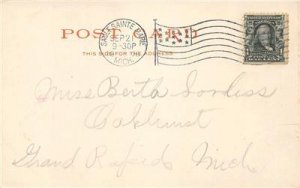 POST CARD
THIS SIDE FOR THE ADDRESS
SAULT SAINTE MARIE
SEP 2
9-30P
MICH.
Miss Berth
Oakhurst
Grand Rapids Mich